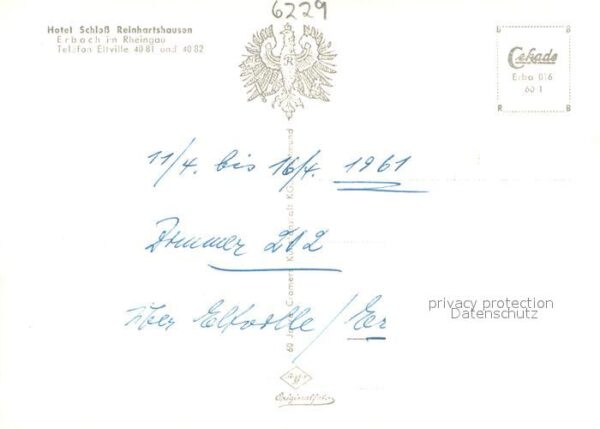 6229
Hotel Schloß Reinhartshausen
Erbach im Rheingau
Telefon Eltville 40 81 und 40 82
R
Cekade
Erba 016
60 1
R B
11/4. bis 16/4. 1961
Zimmer 202
über Eltville /
privacy protection
Datenschutz
60 Jahre Cramers Kunstanstalt KG, Dortmund
Agfa
Originalfoto